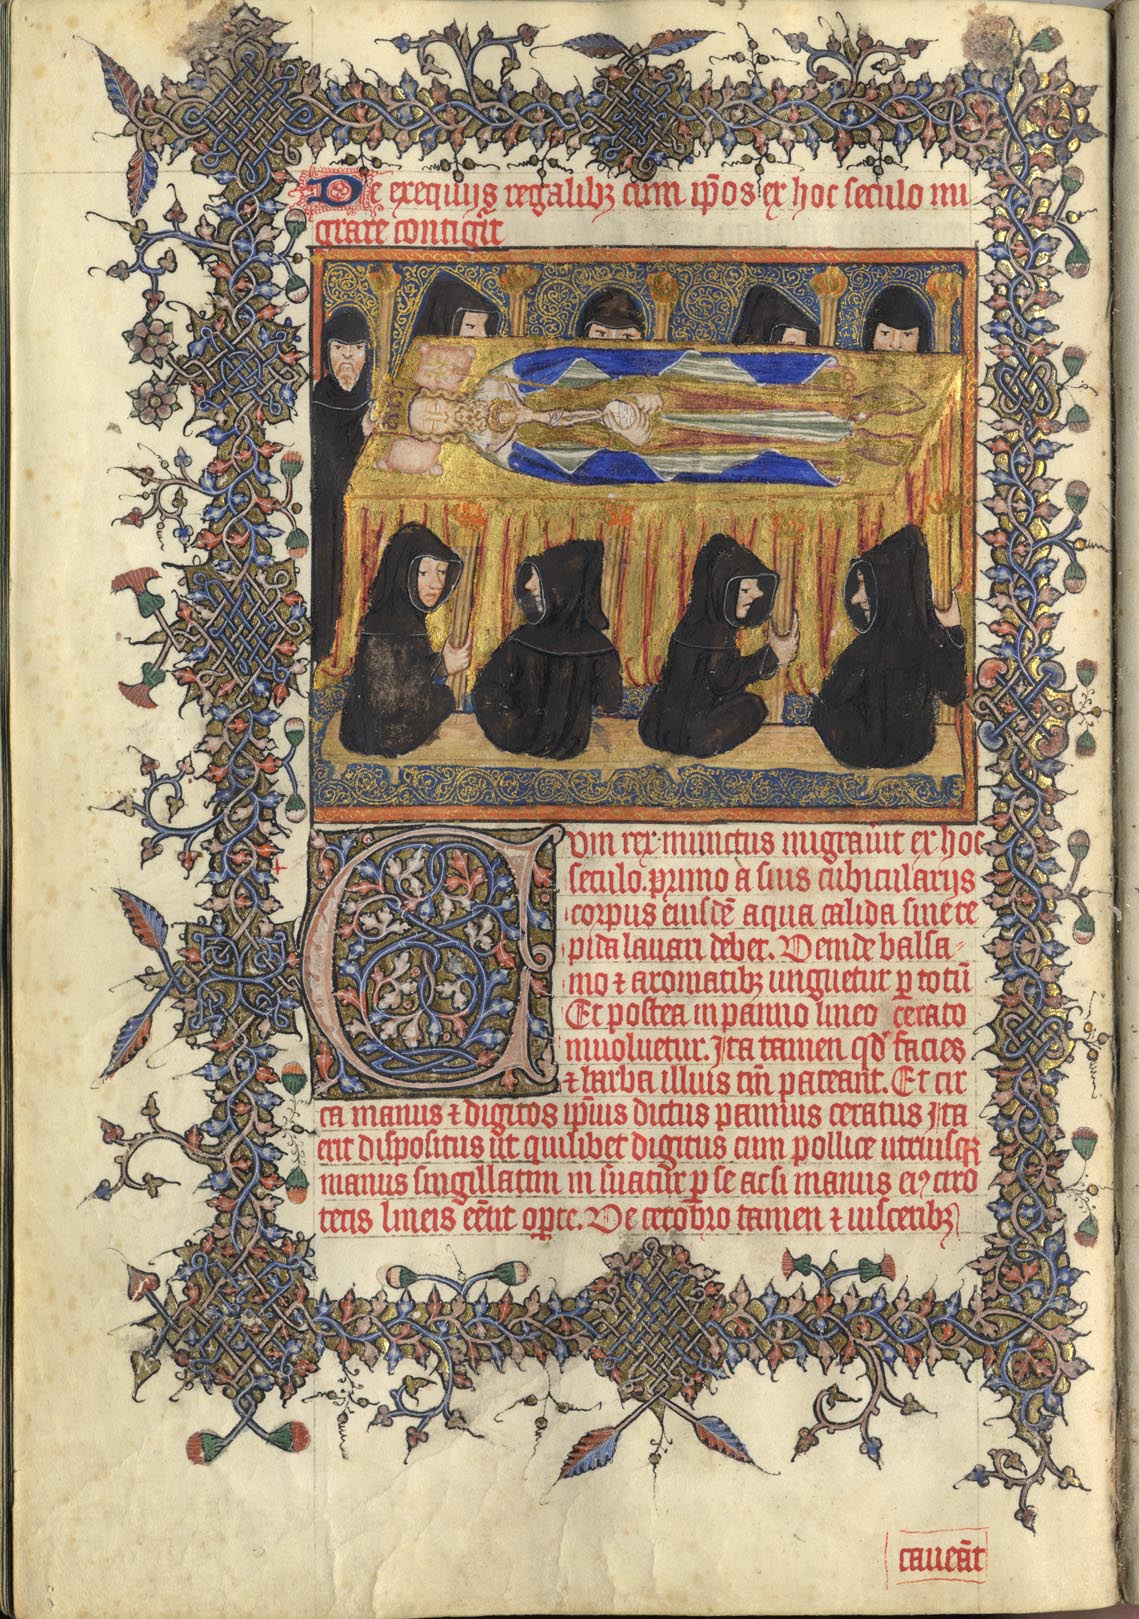 De exequiis regalibꝫ cum ip̄os ex hoc seculo mi
grare contigit̄
Cum rex inunctus migrauit̄ ex hoc
seculo. primo a suis cubicularijs
corpus eiusdē aqua calida siue te
pida lauari debet. Deinde balsa〃
mo ⁊ aromatibꝫ unguetur ꝑ totū
Et postea in panno lineo cerato
inuoluetur. Ita tamen qd̓ facies
⁊ barba illius tm̄ pateant. Et cir
ca manus ⁊ digitos ip̄ius dictus pannus ceratus Ita
erit dispositus ut quilibet digitus cum pollice utriusqꝫ
manus singillatim insuatur ꝑ se acsi manus eiꝰ ciro
tecis lineis eēnt oꝑte. De cerob̄ro tamen ⁊ uisceribꝫ
caueāt